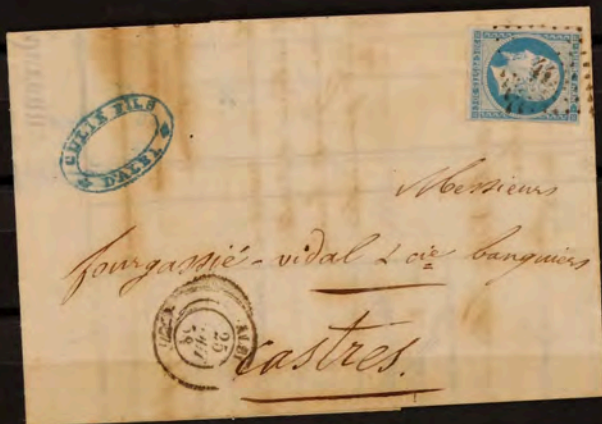 CULIÉ FILS
D'ALBI
Messieurs
fourgassié - vidal & cie banquiers
castres.
ALBI
25